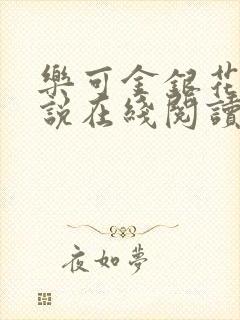 樂可金銀花
說在綫閱讀
夜如夢